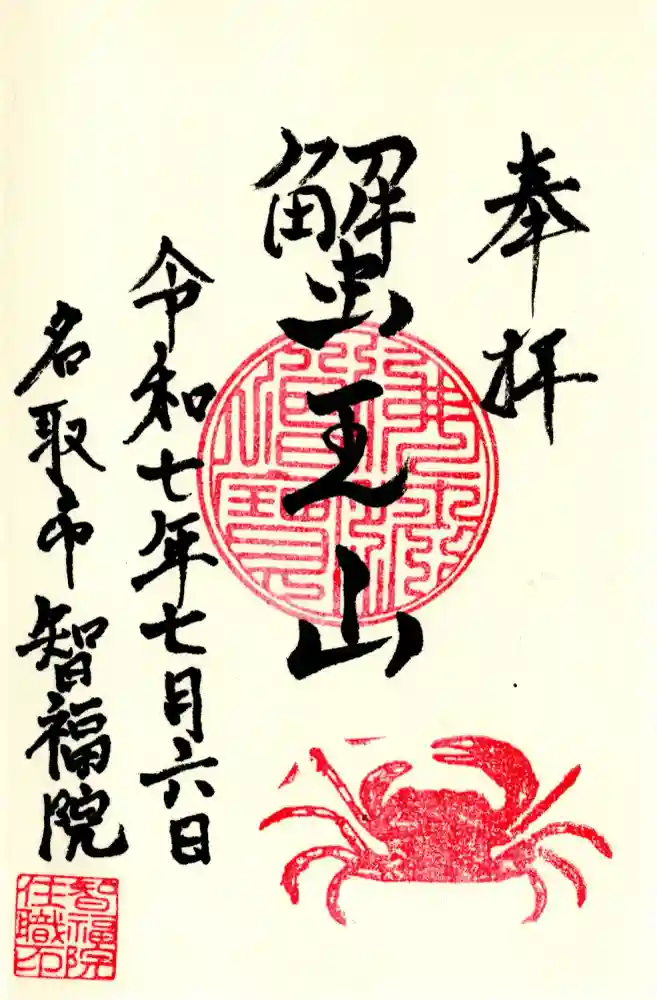 奉拝
蟹王山
令和七年七月六日
名取市智福院
智福院
住職印